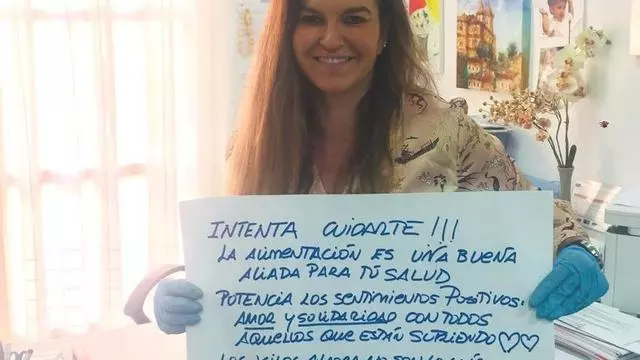 INTENTA CUIDARTE !!!
LA ALIMENTACIÓN ES UNA BUENA
ALIADA PARA TÚ SALUD
POTENCIA LOS SENTIMIENTOS POSITIVOS.
AMOR y SOLIDARIDAD CON TODOS
AQUELLOS QUE ESTÁN SUFRIENDO ♡♡